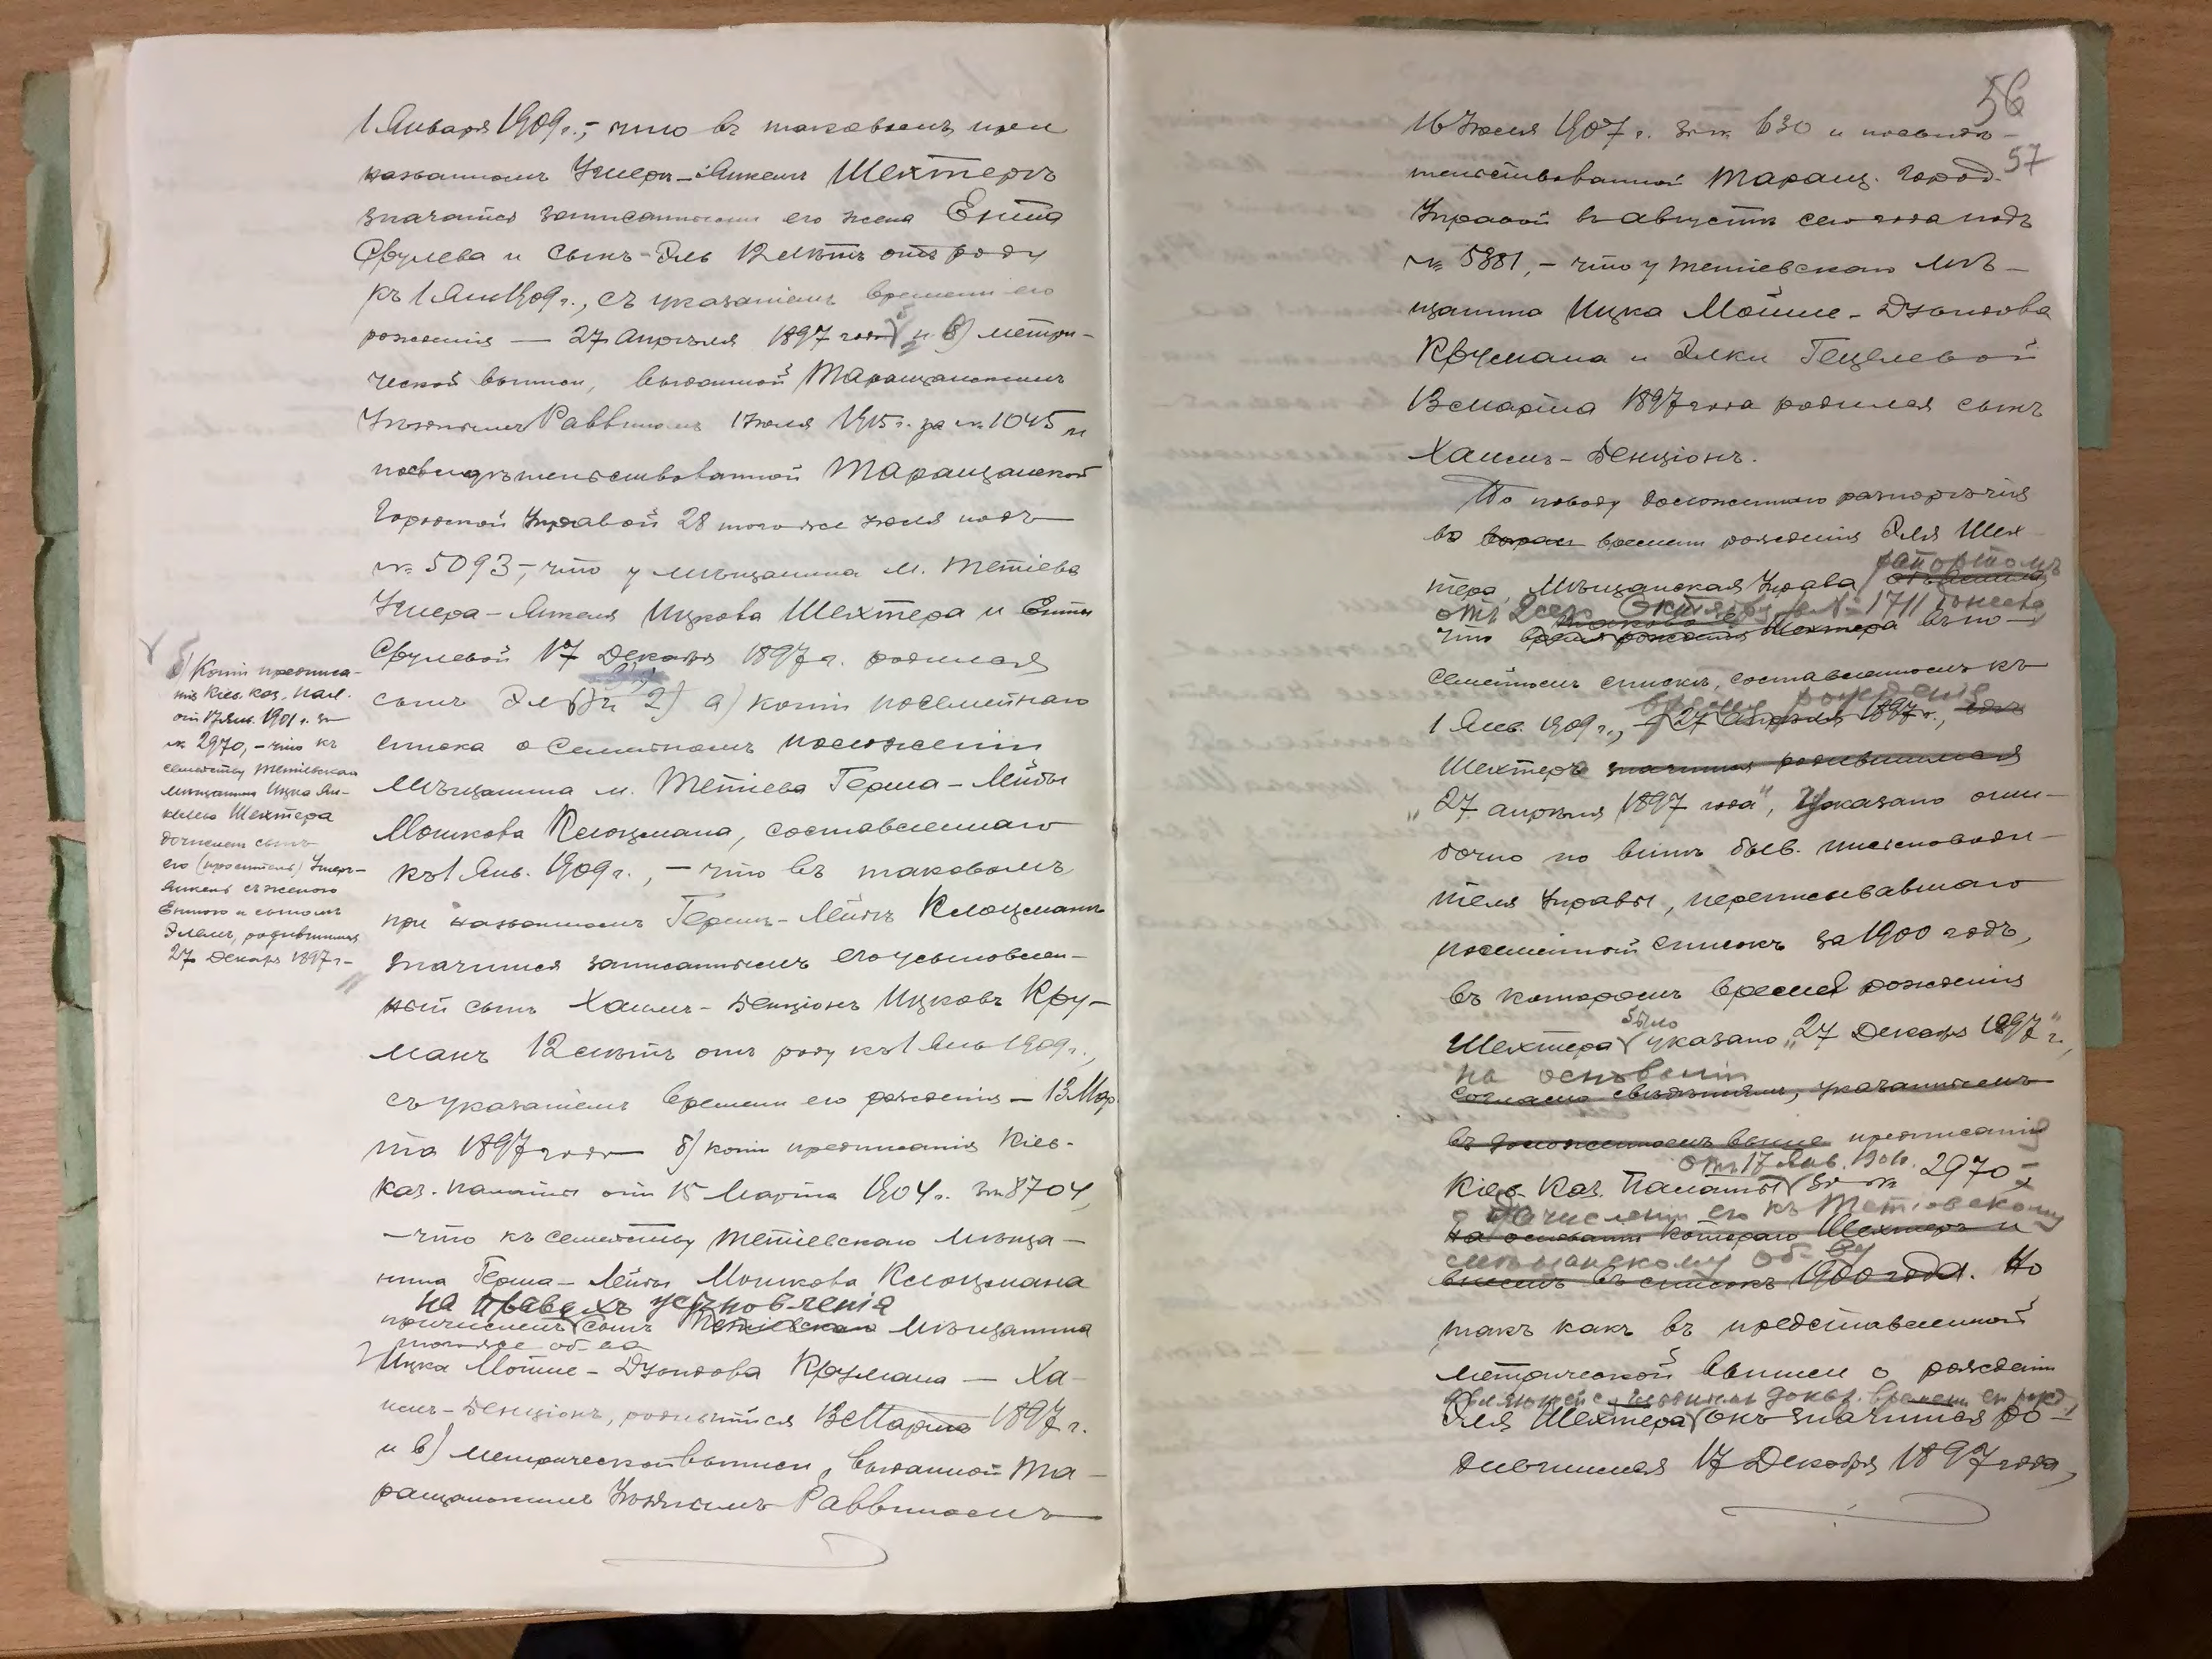 1 Января 1909 г.,- что въ таковомъ при
названномъ Умеръ-Анкелъ Шехтеръ
значатся записанными его жена Ента
Срулева и сынъ-Эль 12 лѣтъ отъ роду
къ 1 Янв 1909 г., съ указаніемъ времени его
рожденія — 27 Апрѣля 1897 года и в) метри-
ческой выписи, выданной Таращанскимъ
Уѣзднымъ Раввиномъ 1 Іюля 1915 г. за № 1045 и
посвидѣтельствованной Таращанской
Городской Управой 28 того же Іюля подъ
№ 5093,- что у мѣщанина м. Тетіева
Умера-Анкеля Ицкова Шехтера и Енты
Срулевой 17 Декабря 1897 г. родился
сынъ Эль и 2) а) копіи посемейнаго
списка о семейномъ положеніи
мѣщанина м. Тетіева Герша-Лейбы
Мошкова Клоцмана, составленнаго
къ 1 Янв. 1909 г., - что въ таковомъ
при названномъ Гершъ-Лейбѣ Клоцманъ
значится записаннымъ его усыновлен-
ный сынъ Хаимъ-Бенціонъ Ицковъ Кру-
манъ 12 лѣтъ отъ роду къ 1 Янв 1909 г.,
съ указаніемъ времени его рожденія — 13 Мар
та 1897 года б) копіи предписанія Кіев-
каз. палаты отъ 15 Марта 1904 г. за 8704,
- что къ семейству Тетіевскаго мѣща-
нина Герша-Лейбы Мошкова Клоцмана
на правахъ усыновленія
причисленъ сынъ Тетіевскаго мѣщанина
того же об-ва
Ицка Мойше-Дзюндова Крумана — Ха-
имъ-Бенціонъ, родившійся 13 Марта 1897 г.
и в) метрической выписи, выданной Та-
ращанскимъ Уѣзднымъ Раввиномъ
б) Копіи предписа-
нія Кіев. каз. пал.
отъ 17 Янв. 1901 г. за
№ 2970, - что къ
семейству Тетіевскаго
мѣщанина Ицка Ан-
келева Шехтера
причисленъ сынъ
его (проситель) Умеръ-
Анкель съ женою
Ентою и сыномъ
Элемъ, родившимся
27 Декабря 1897 г.-
56
57
16 Іюля 1907 г. за № 630 и посвидѣ-
тельствованной Таращ. Город.
Управой въ августѣ сего года подъ
№ 5381, - что у Тетіевскаго мѣ-
щанина Ицка Мойше-Дзюндова
Крумана и Элки Гецелевой
13 Марта 1897 года родился сынъ
Хаимъ-Бенціонъ.
По поводу доложеннаго разнорѣчія
во времени рожденія Эля Шех-
тера, Мѣщанская Управа рапортомъ
отъ 2 сего Октября за № 1711 донесла
что время рожденія Шехтера въ по-
семейномъ спискѣ, составленномъ къ
время рожденія
1 Янв. 1909 г., 27 апрѣля 1897 г.,
Шехтера значится родившимся
„27 апрѣля 1897 года", указано оши-
бочно по винѣ бывш. письмоводи-
теля Управы, переписывавшаго
посемейный списокъ за 1900 годъ,
въ которомъ время рожденія
было
Шехтера указано „27 Декабря 1897" г.,
на основаніи
согласно свѣдѣніямъ, указаннымъ
въ доложенномъ выше предписаніи
отъ 17 Янв. 1901 г.
Кіев. Каз. Палаты за № 2970
о причисленіи его къ Тетіевскому
на основаніи котораго Шехтеръ и
мѣщанскому об-ву
внесенъ въ списокъ 1900 года. Но
такъ какъ въ представленной
метрической выписи о рожденіи
Эля Шехтера онъ значится ро-
дившимся 17 Декабря 1897 года,